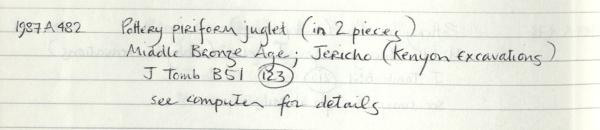 1987A482 Pottery piriform juglet (in 2 pieces)
Middle Bronze Age; Jericho (Kenyon Excavations)
J Tomb B51 123
see computer for details